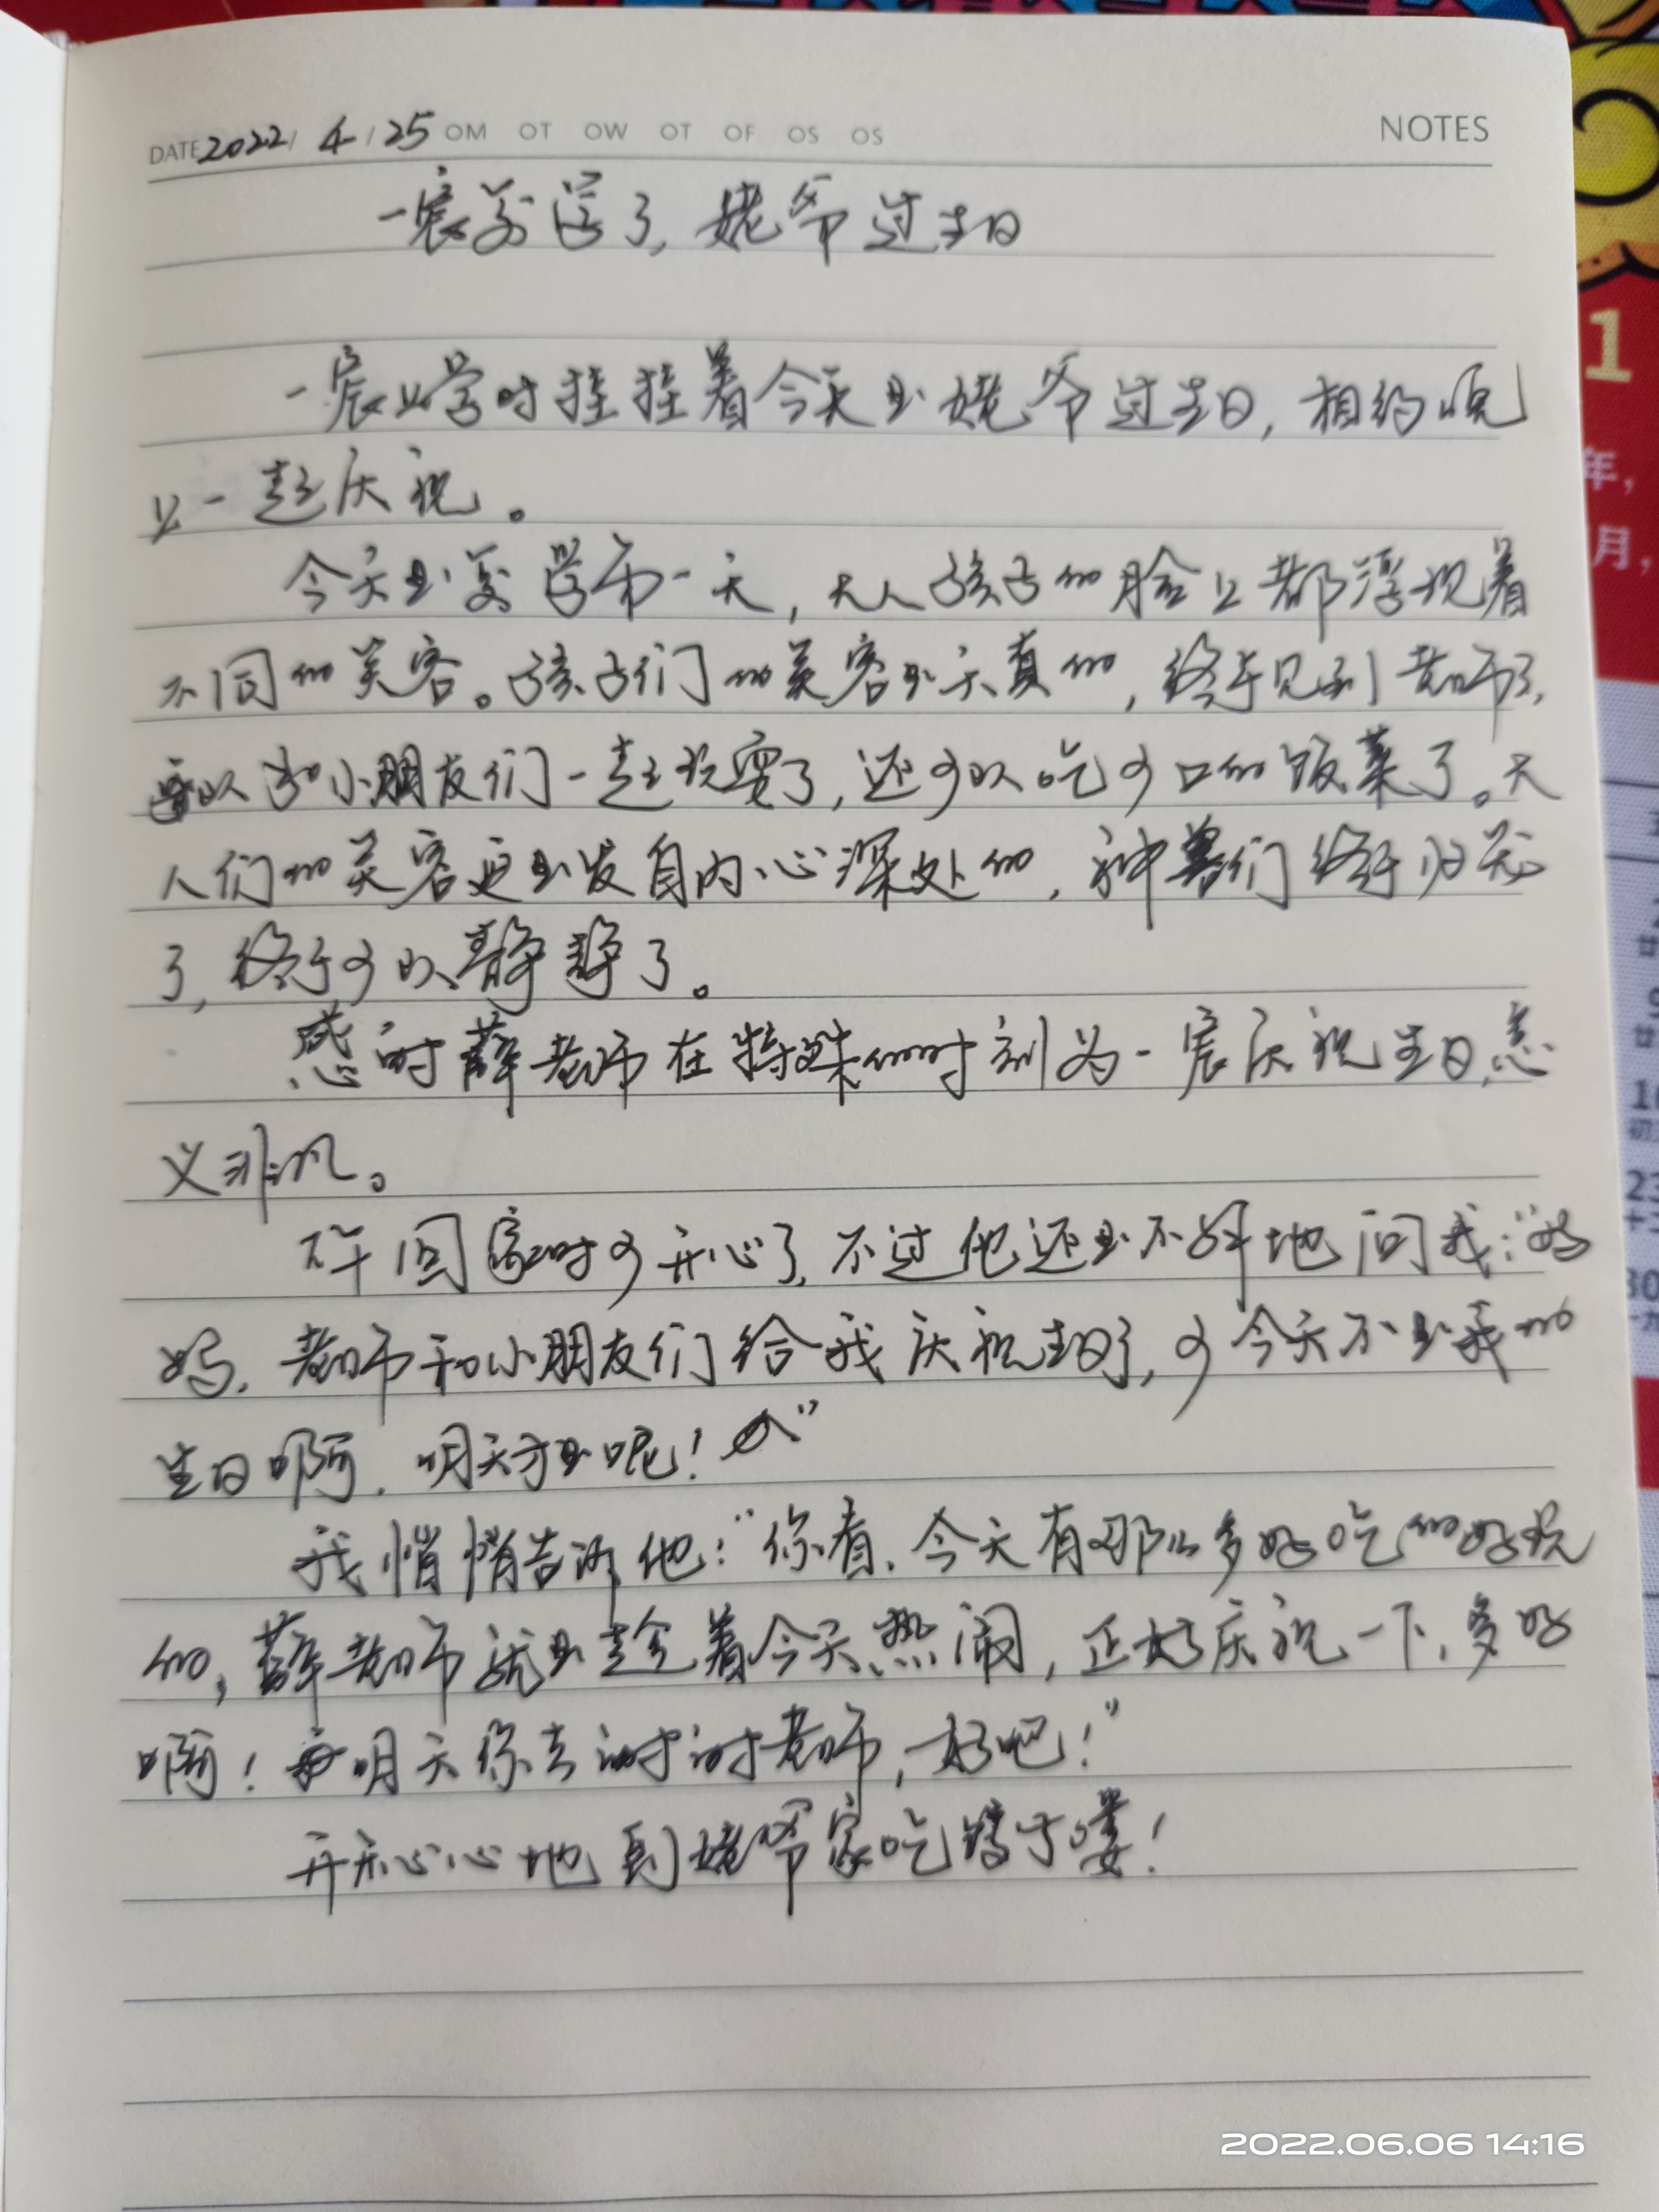 DATE 2022/ 4 / 25 OM OT OW OT OF OS OS NOTES
一宸开学了,姥爷过生日
一宸上学时挂挂着今天是姥爷过生日,相约晚
上一起庆祝。
今天是开学第一天,大人孩子的脸上都浮现着
不同的笑容。孩子们的笑容是天真的,终于见到老师了,
可以和小朋友们一起玩耍了,还可以吃可口的饭菜了。大
人们的笑容更是发自内心深处的,神兽们终于归笼
了,终于可以静静了。
感谢薛老师在特殊的时刻为一宸庆祝生日,意
义非凡。
下午回家时可开心了,不过他还是不解地问我:“妈
妈,老师和小朋友们给我庆祝生日了,可今天不是我的
生日啊,明天才是呢!”
我悄悄告诉他:“你看,今天有那么多好吃的好玩
的,薛老师就是趁着今天热闹,正好庆祝一下,多好
啊!明天你去谢谢老师,好吧!”
开开心心地到姥爷家吃饺子喽!
1
年,
月,
2022.06.06 14:16